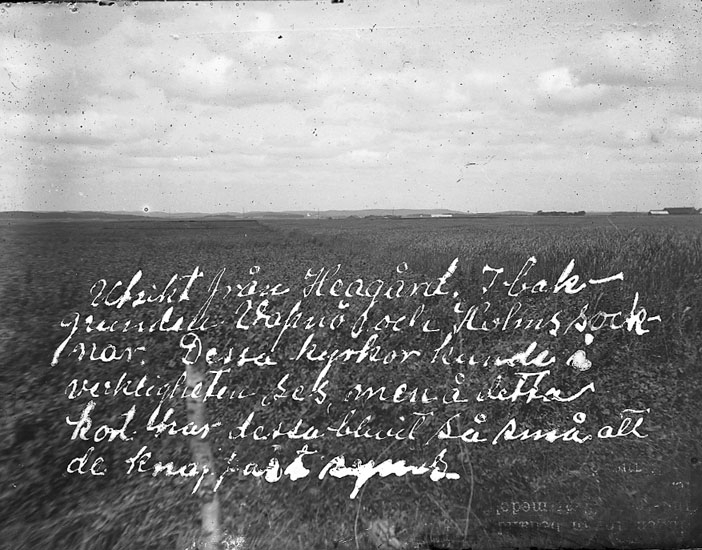 Utsikt från Heagård. I bak-
grunden Vapnö och Holms sock-
nar. Dessa kyrkor kunde i
verkligheten ses, men å detta
kort har dessa blivit så små att
de knappast synas